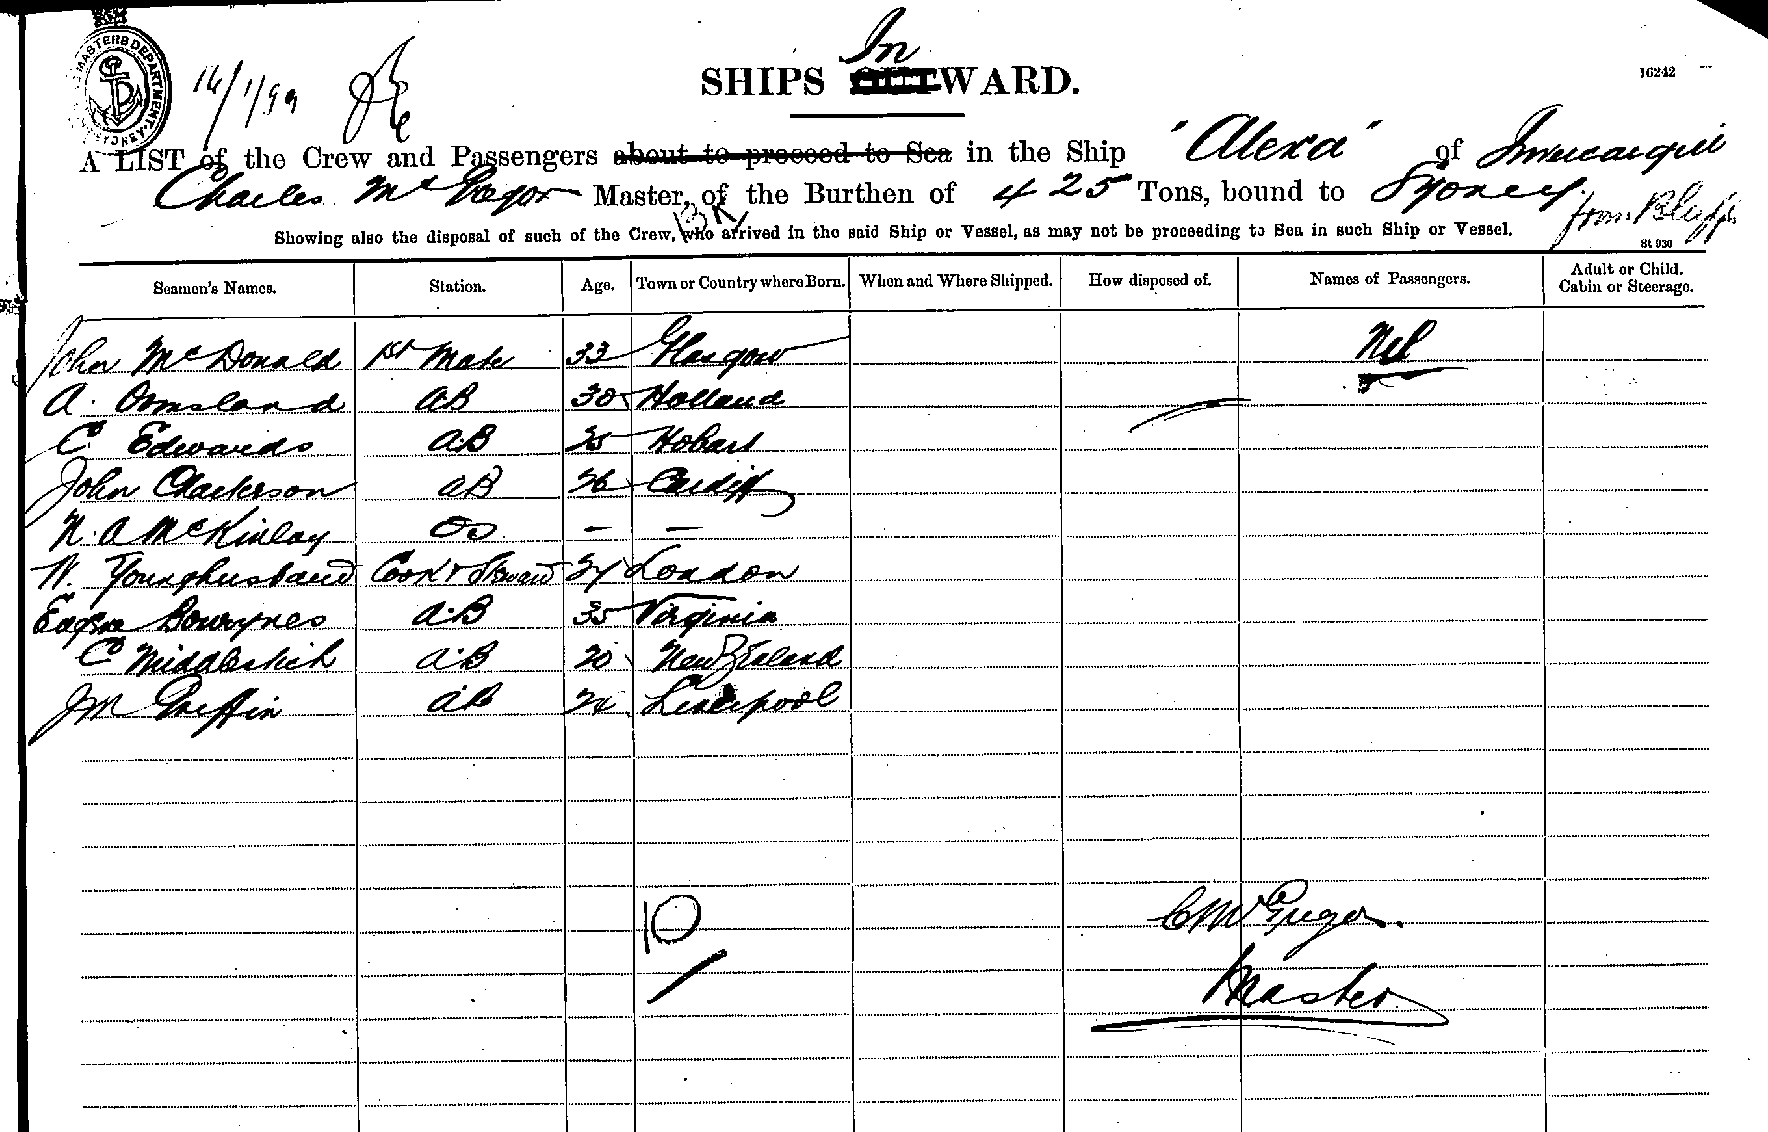 In
SHIPS WARD.
16242
14/1/99
A LIST of the Crew and Passengers about to proceed to Sea in the Ship 'Alexa' of Invercargill
Charles McGregor Master, of the Burthen of 425 Tons, bound to Sydney from Bluff
BK
Showing also the disposal of such of the Crew, who arrived in the said Ship or Vessel, as may not be proceeding to Sea in such Ship or Vessel.
St 930
Seamen's Names. Station. Age. Town or Country where Born. When and Where Shipped. How disposed of. Names of Passengers. Adult or Child. Cabin or Steerage.
John McDonald 1st Mate 33 Glasgow Nil
A. Ormsland AB 30 Holland
C Edwards A.B 25 Hobart
John Clackerson AB 26 Cardiff
N. A McKinlay OS – –
W. Younghusband Cook & Steward 24 London
Bowynes A.B 35 Virginia
C A.B 20 New Zealand
JM Griffin AB Liverpool
10
C McGregor.
Master